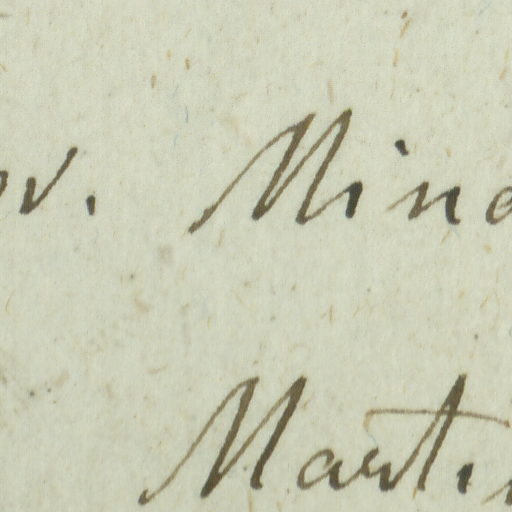 ov. Mina
Martin